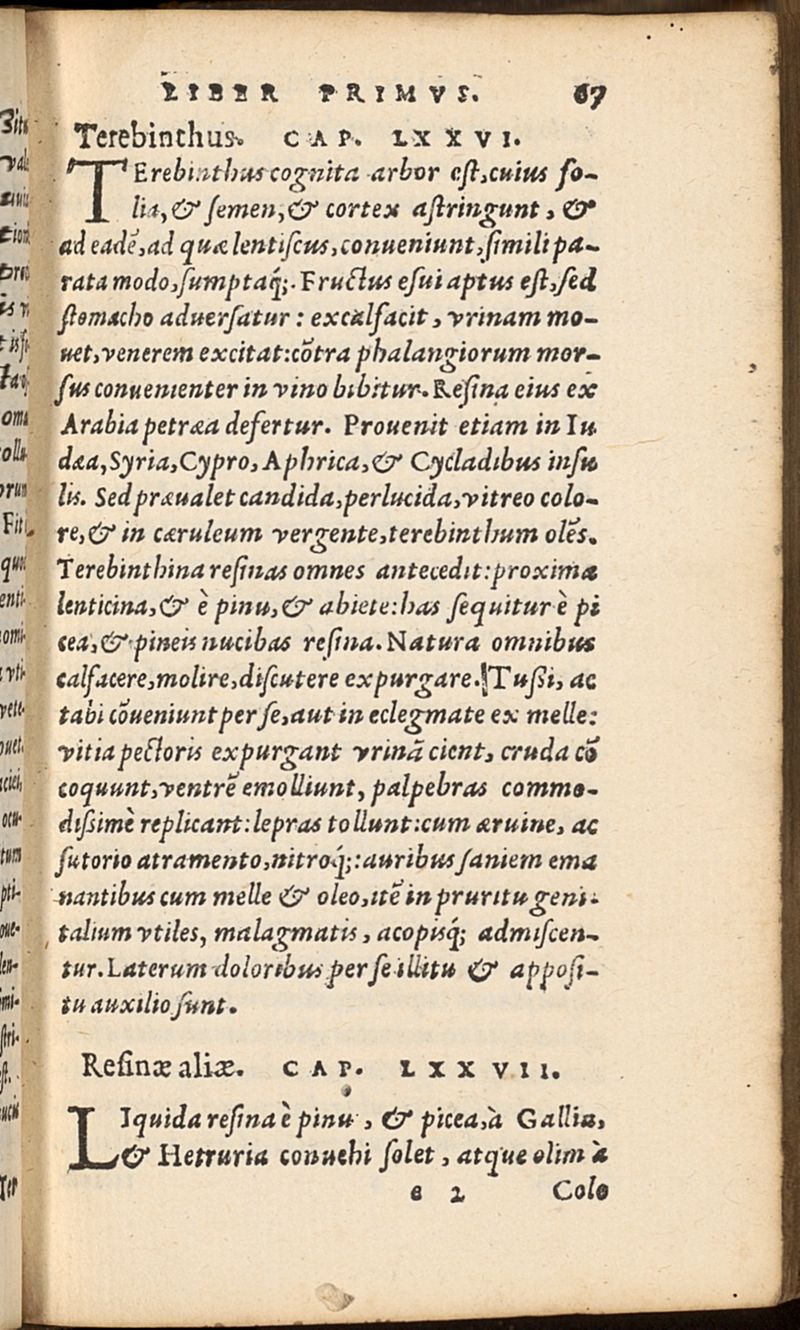 LIBER PRIMVS. 67
Terebinthus. CAP. LXXVI.
TErebinthus cognita arbor est, cuius fo-
lia, & semen, & cortex astringunt, &
ad eadẽ, ad quæ lentiscus, conueniunt, simili pa-
rata modo, sumptaq́;. Fructus esui aptus est, sed
stomacho aduersatur: excalfacit, vrinam mo-
uet, venerem excitat: cõtra phalangiorum mor-
sus conuenienter in vino bibitur. Resina eius ex
Arabia petræa defertur. Prouenit etiam in Iu
dæa, Syria, Cypro, Aphrica, & Cycladibus insu
lis. Sed præualet candida, perlucida, vitreo colo-
re, & in cæruleum vergente, terebinthum olẽs.
Terebinthina resinas omnes antecedit: proxima
lenticina, & è pinu, & abiete: has sequitur è pi
cea, & pineis nucibas resina. Natura omnibus
calfacere, molire, discutere expurgare. Tussi, ac
tabi cõueniunt per se, aut in eclegmate ex melle:
vitia pectoris expurgant vrinã cient, cruda cõ
coquunt, ventrẽ emolliunt, palpebras commo-
dissimè replicant: lepras tollunt: cum æruine, ac
sutorio atramento, nitroq́;: auribus saniem ema
nantibus cum melle & oleo, itẽ in pruritu geni-
talium vtiles, malagmatis, acopisq́; admiscen-
tur. Laterum doloribus per se illitu & apposi-
tu auxilio sunt.
Resinæ aliæ. CAP. LXXVII.
LIquida resina è pinu, & picea, à Gallia,
& Hetruria conuehi solet, atque olim à
e 2 Colo